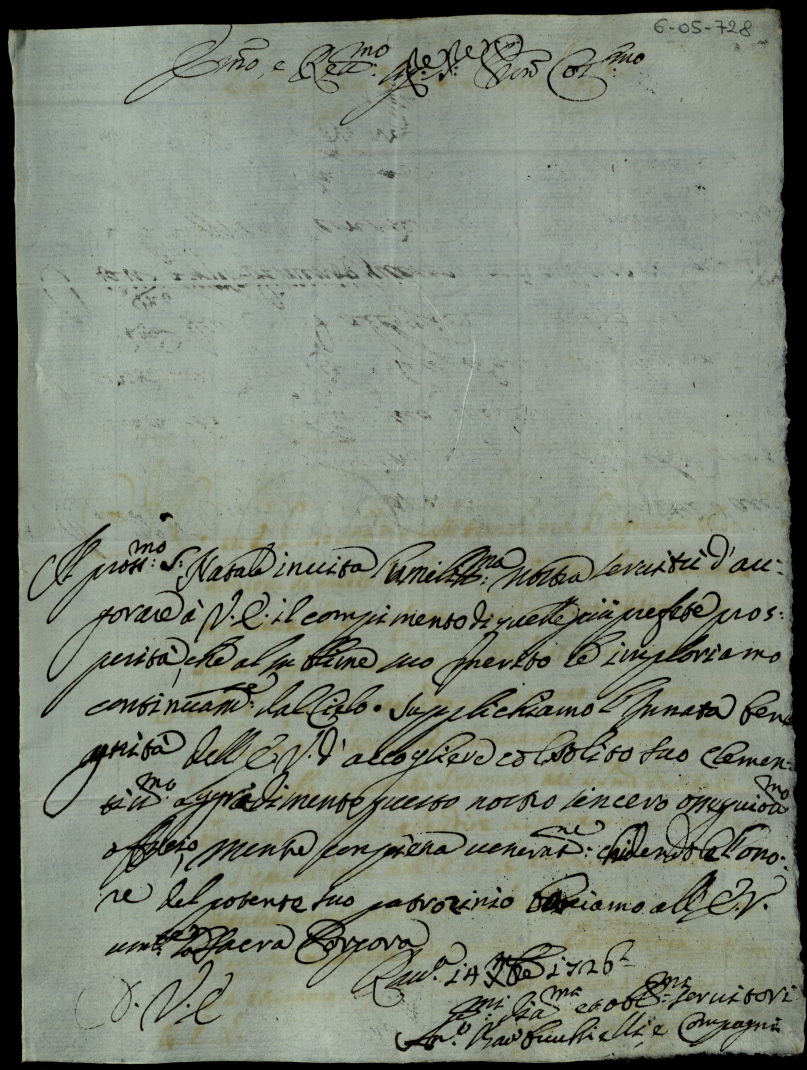 6-05-728
Emo, e Reu:mo Sig:re Sig:re Pron Col:mo
Il pross:mo S: Natale inuita l'umiliss:ma nostra seruitù d'au:
gorare à V.E. il compimento di quelle più prefete pros:
perità, che al sublime suo merito le imploriamo
continuam:e dal Cielo. Supplichiamo l'innata beni
gnità dell'E.V. d'accogliere col solito suo clemen:
tiss:mo aggradimento questo nostro sincero ossequioss:mo
offizio, mentre con piena uenerat:ne chiedendole l'ono:
re del potente suo patrocinio baciamo all'E.V.
um:te la Sacra Porpora
Rau:a 14 Xbre 1726
D. V. E.
Um:mi Diu:mi et obl:mi seruitori
e Compagni